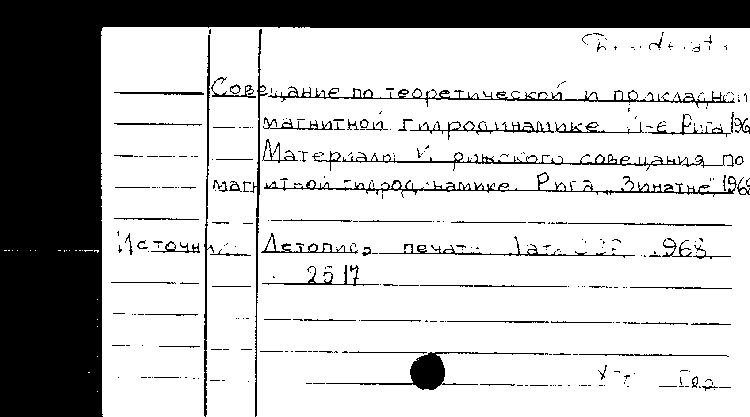 Совещание по теоретической и прикладной
магнитной гидродинамике. Рига, 196
Материалы рижского совещания по
магнитной гидродинамике. Рига, "Зинатне", 1968
Источник: Летопись печати Латв. ССР 1968
2517